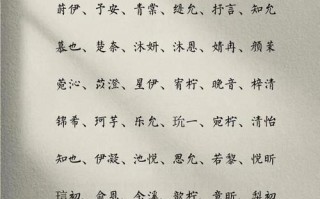 莳伊、予安、青棠、缇允、抒言、知允
慕也、楚奈、沐妍、沐恩、婧冉、颜茉
菀沁、苡澄、星伊、宥柠、晚音、梓清
锦希、珂芋、乐允、玧一、宛柠、清怡
知也、伊凝、池悦、思允、若黎、悦昕
瑄初、俞恩、今溪、歆柠、意昕、梨初